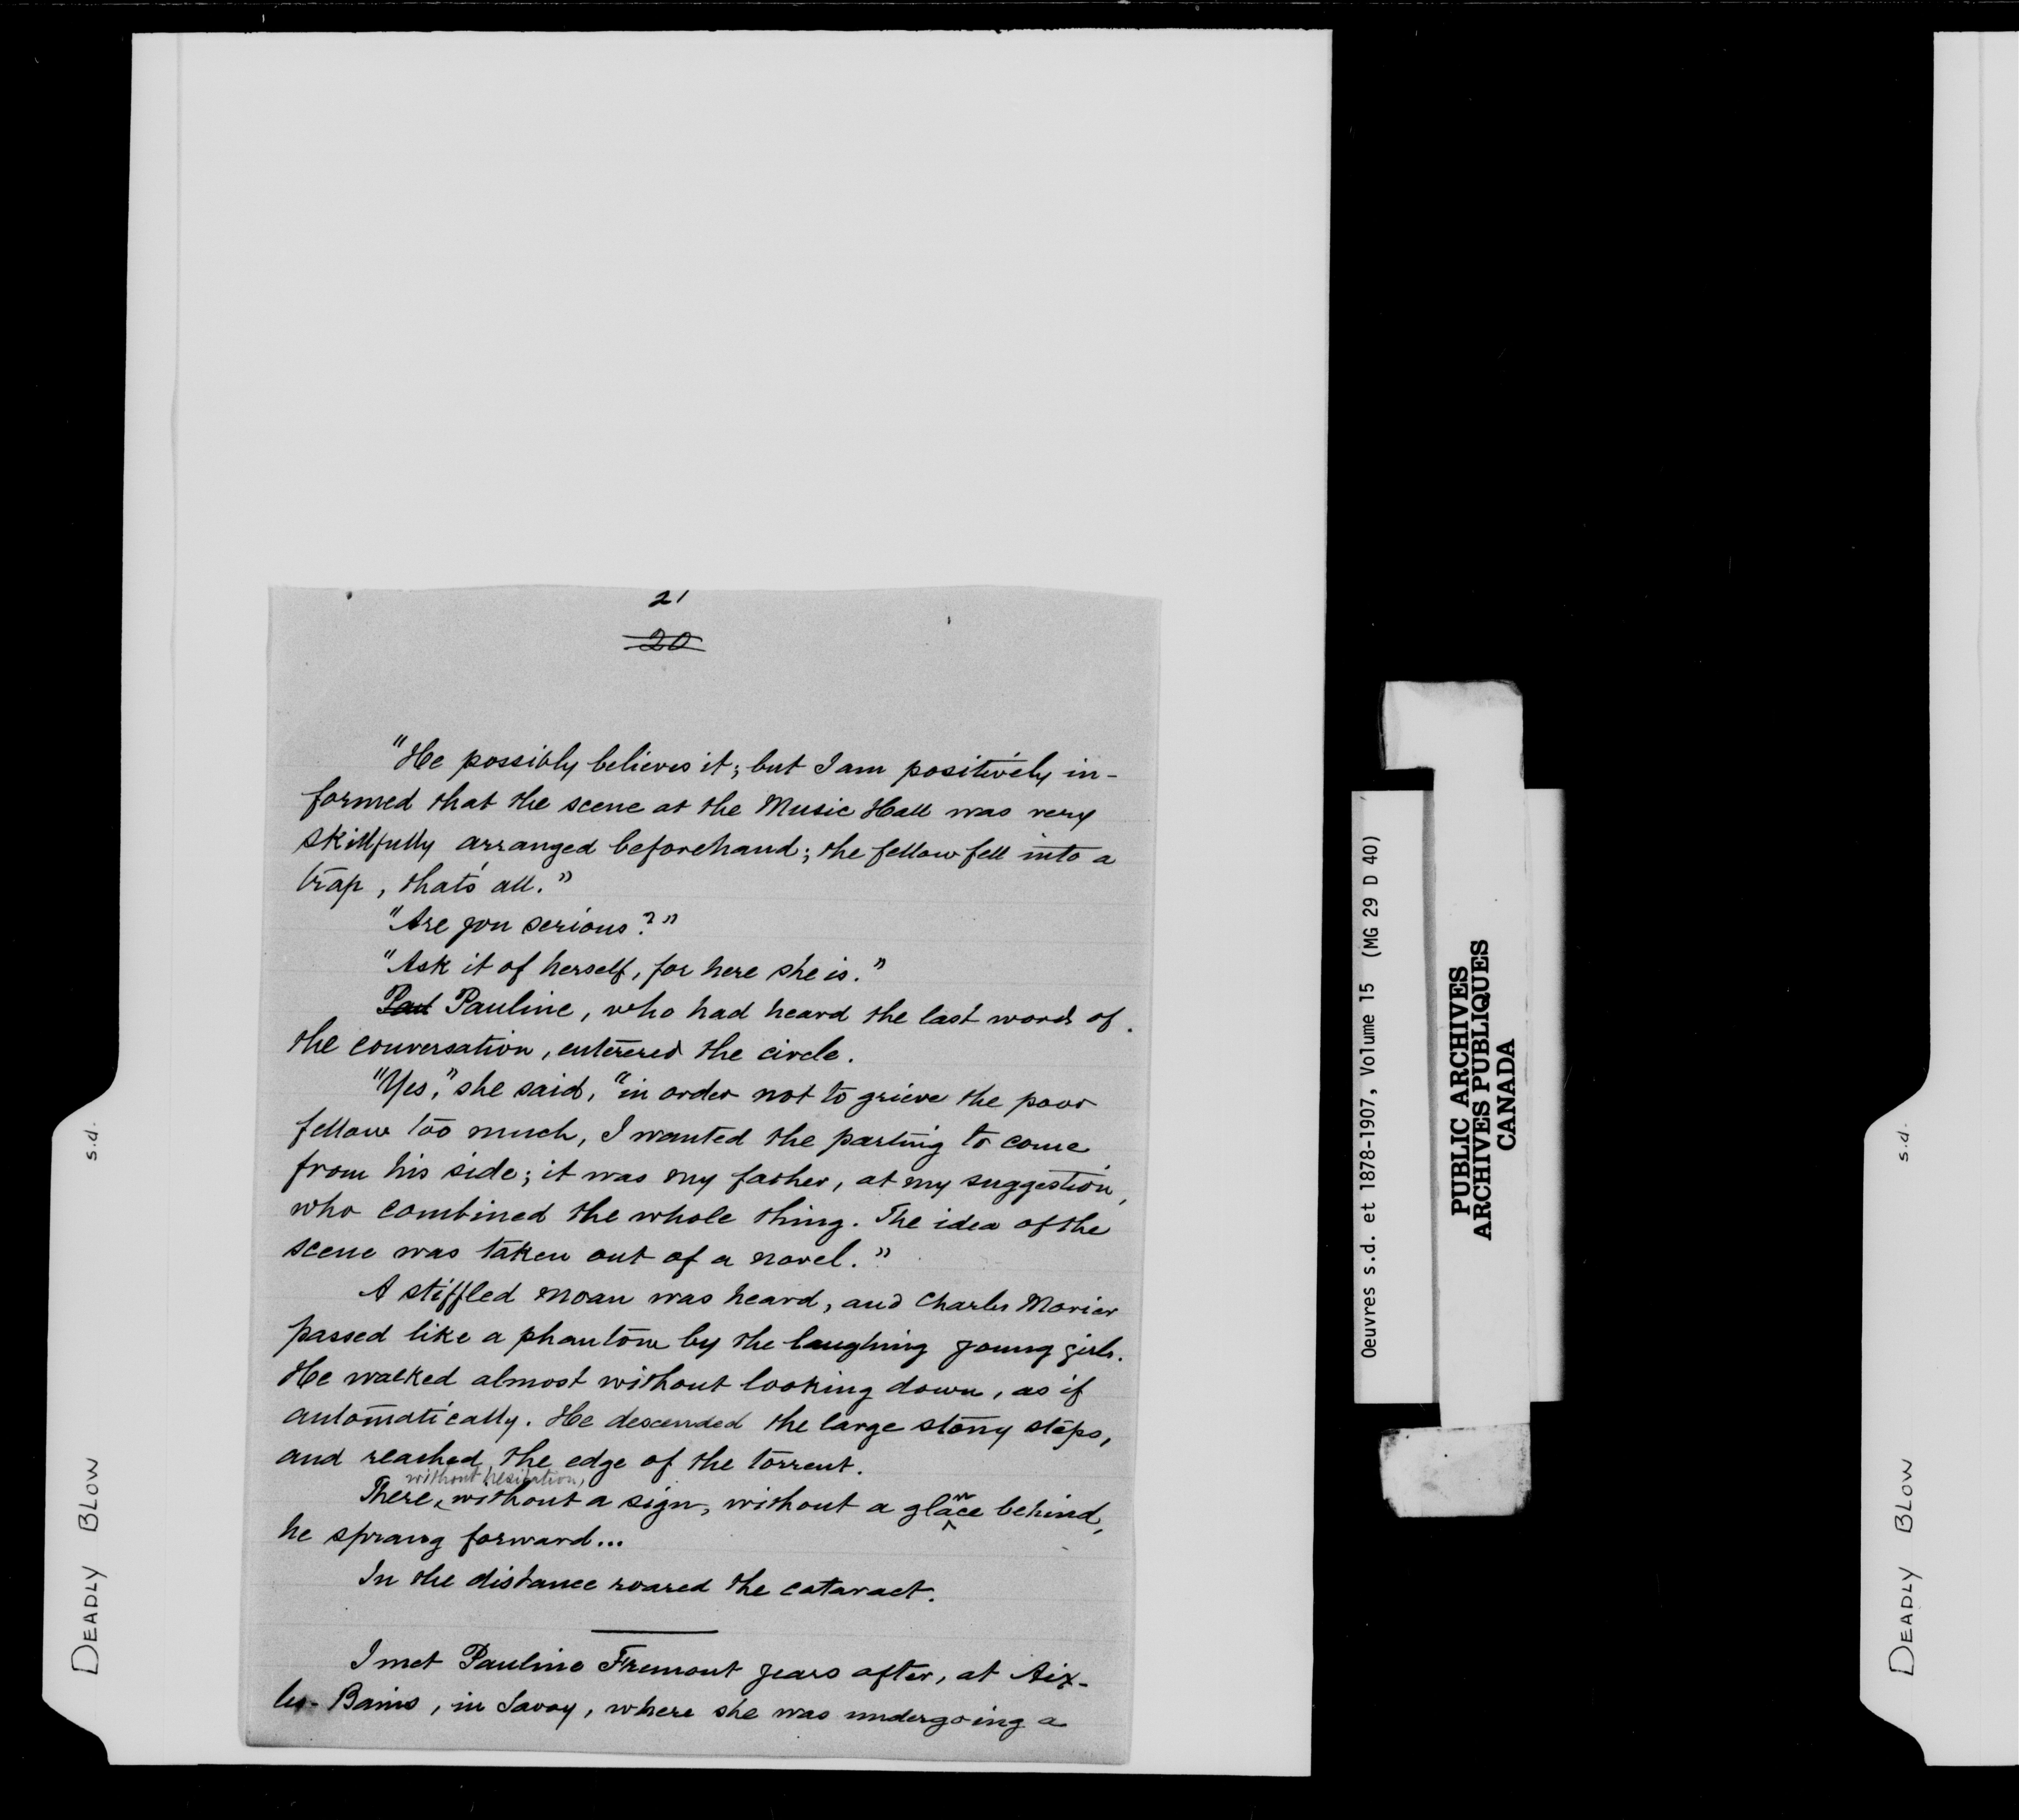 21
20
"He possibly believes it; but I am positively in-
formed that the scene at the Music Hall was very
skillfully arranged beforehand; the fellow fell into a
trap, that's all."
"Are you serious?"
"Ask it of herself, for here she is."
Paul Pauline, who had heard the last words of
the conversation, enterered the circle.
"Yes," she said, "in order not to grieve the poor
fellow too much, I wanted the parting to come
from his side; it was my father, at my suggestion,
who combined the whole thing. The idea of the
scene was taken out of a novel."
A stiffled moan was heard, and Charles Morier
passed like a phantom by the laughing young girls.
He walked almost without looking down, as if
automatically. He descended the large stony steps,
and reached the edge of the torrent.
There, without hesitation, without a sign, without a glance behind,
he sprang forward...
In the distance roared the cataract.
I met Pauline Fremont years after, at Aix-
les-Bains, in Savoy, where she was undergoing a
DEADLY BLOW s.d.
Oeuvres s.d. et 1878-1907, Volume 15 (MG 29 D 40)
PUBLIC ARCHIVES
ARCHIVES PUBLIQUES
CANADA
DEADLY BLOW s.d.